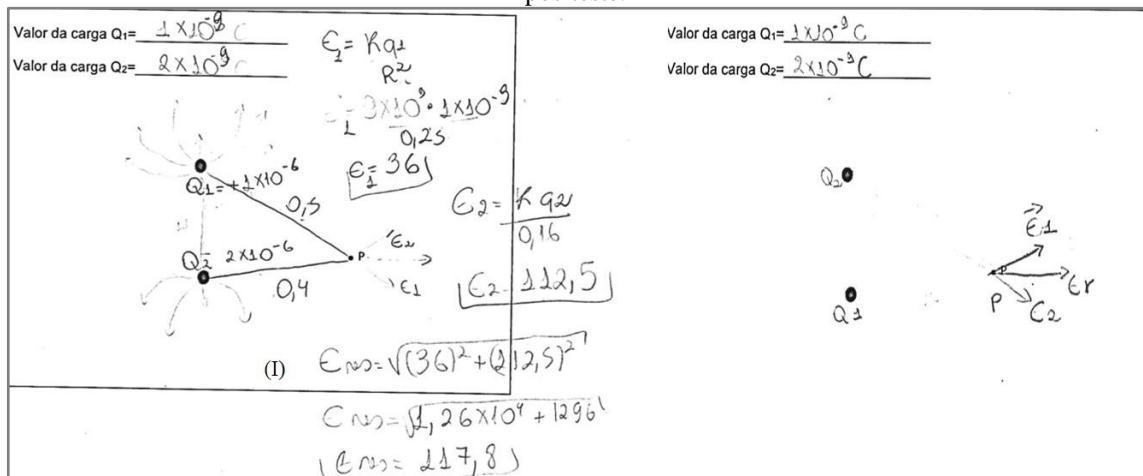 Valor da carga Q1= 1x10⁻⁹ C
Valor da carga Q2= 2x10⁻⁹ C
Є1 = Kq1
R²
9x10⁹ · 1x10⁻⁹
0,25
Є1 = 36
Q1 = +1x10⁻⁶
0,5
Q2 2x10⁻⁶
0,4
P
Є2
Є1
Є2 = K q2
0,16
Є2 = 112,5
(I)
Єres = √(36)² + (112,5)²
Єres = √1,26x10⁴ + 1296
Єres = 117,8
Valor da carga Q1= 1x10⁻⁹ C
Valor da carga Q2= 2x10⁻⁹ C
Q2
Q1
Є1
P
Єr
P
Є2